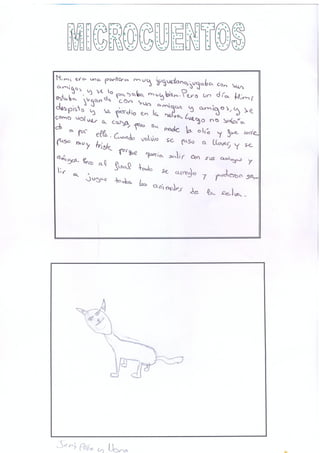 MICROCUENTOS
Mimi era una pantera muy juguetona, jugaba con sus
amigos, y se lo pasaba muy bien. Pero un día Mimi
estaba jugando con sus amigas y amigos, y se
despisto y se perdio en la selva. Luego no sabía
como volver a casa, pero su madre la olío y fue
a por ella. Cuando volvío se puso a llorar, y se
puso muy triste porque queria salir con sus amigos y
amigas. Pero al final todo se arreglo y pudieron sa-
lir a jugar todos los animales de la selva.
y Nora